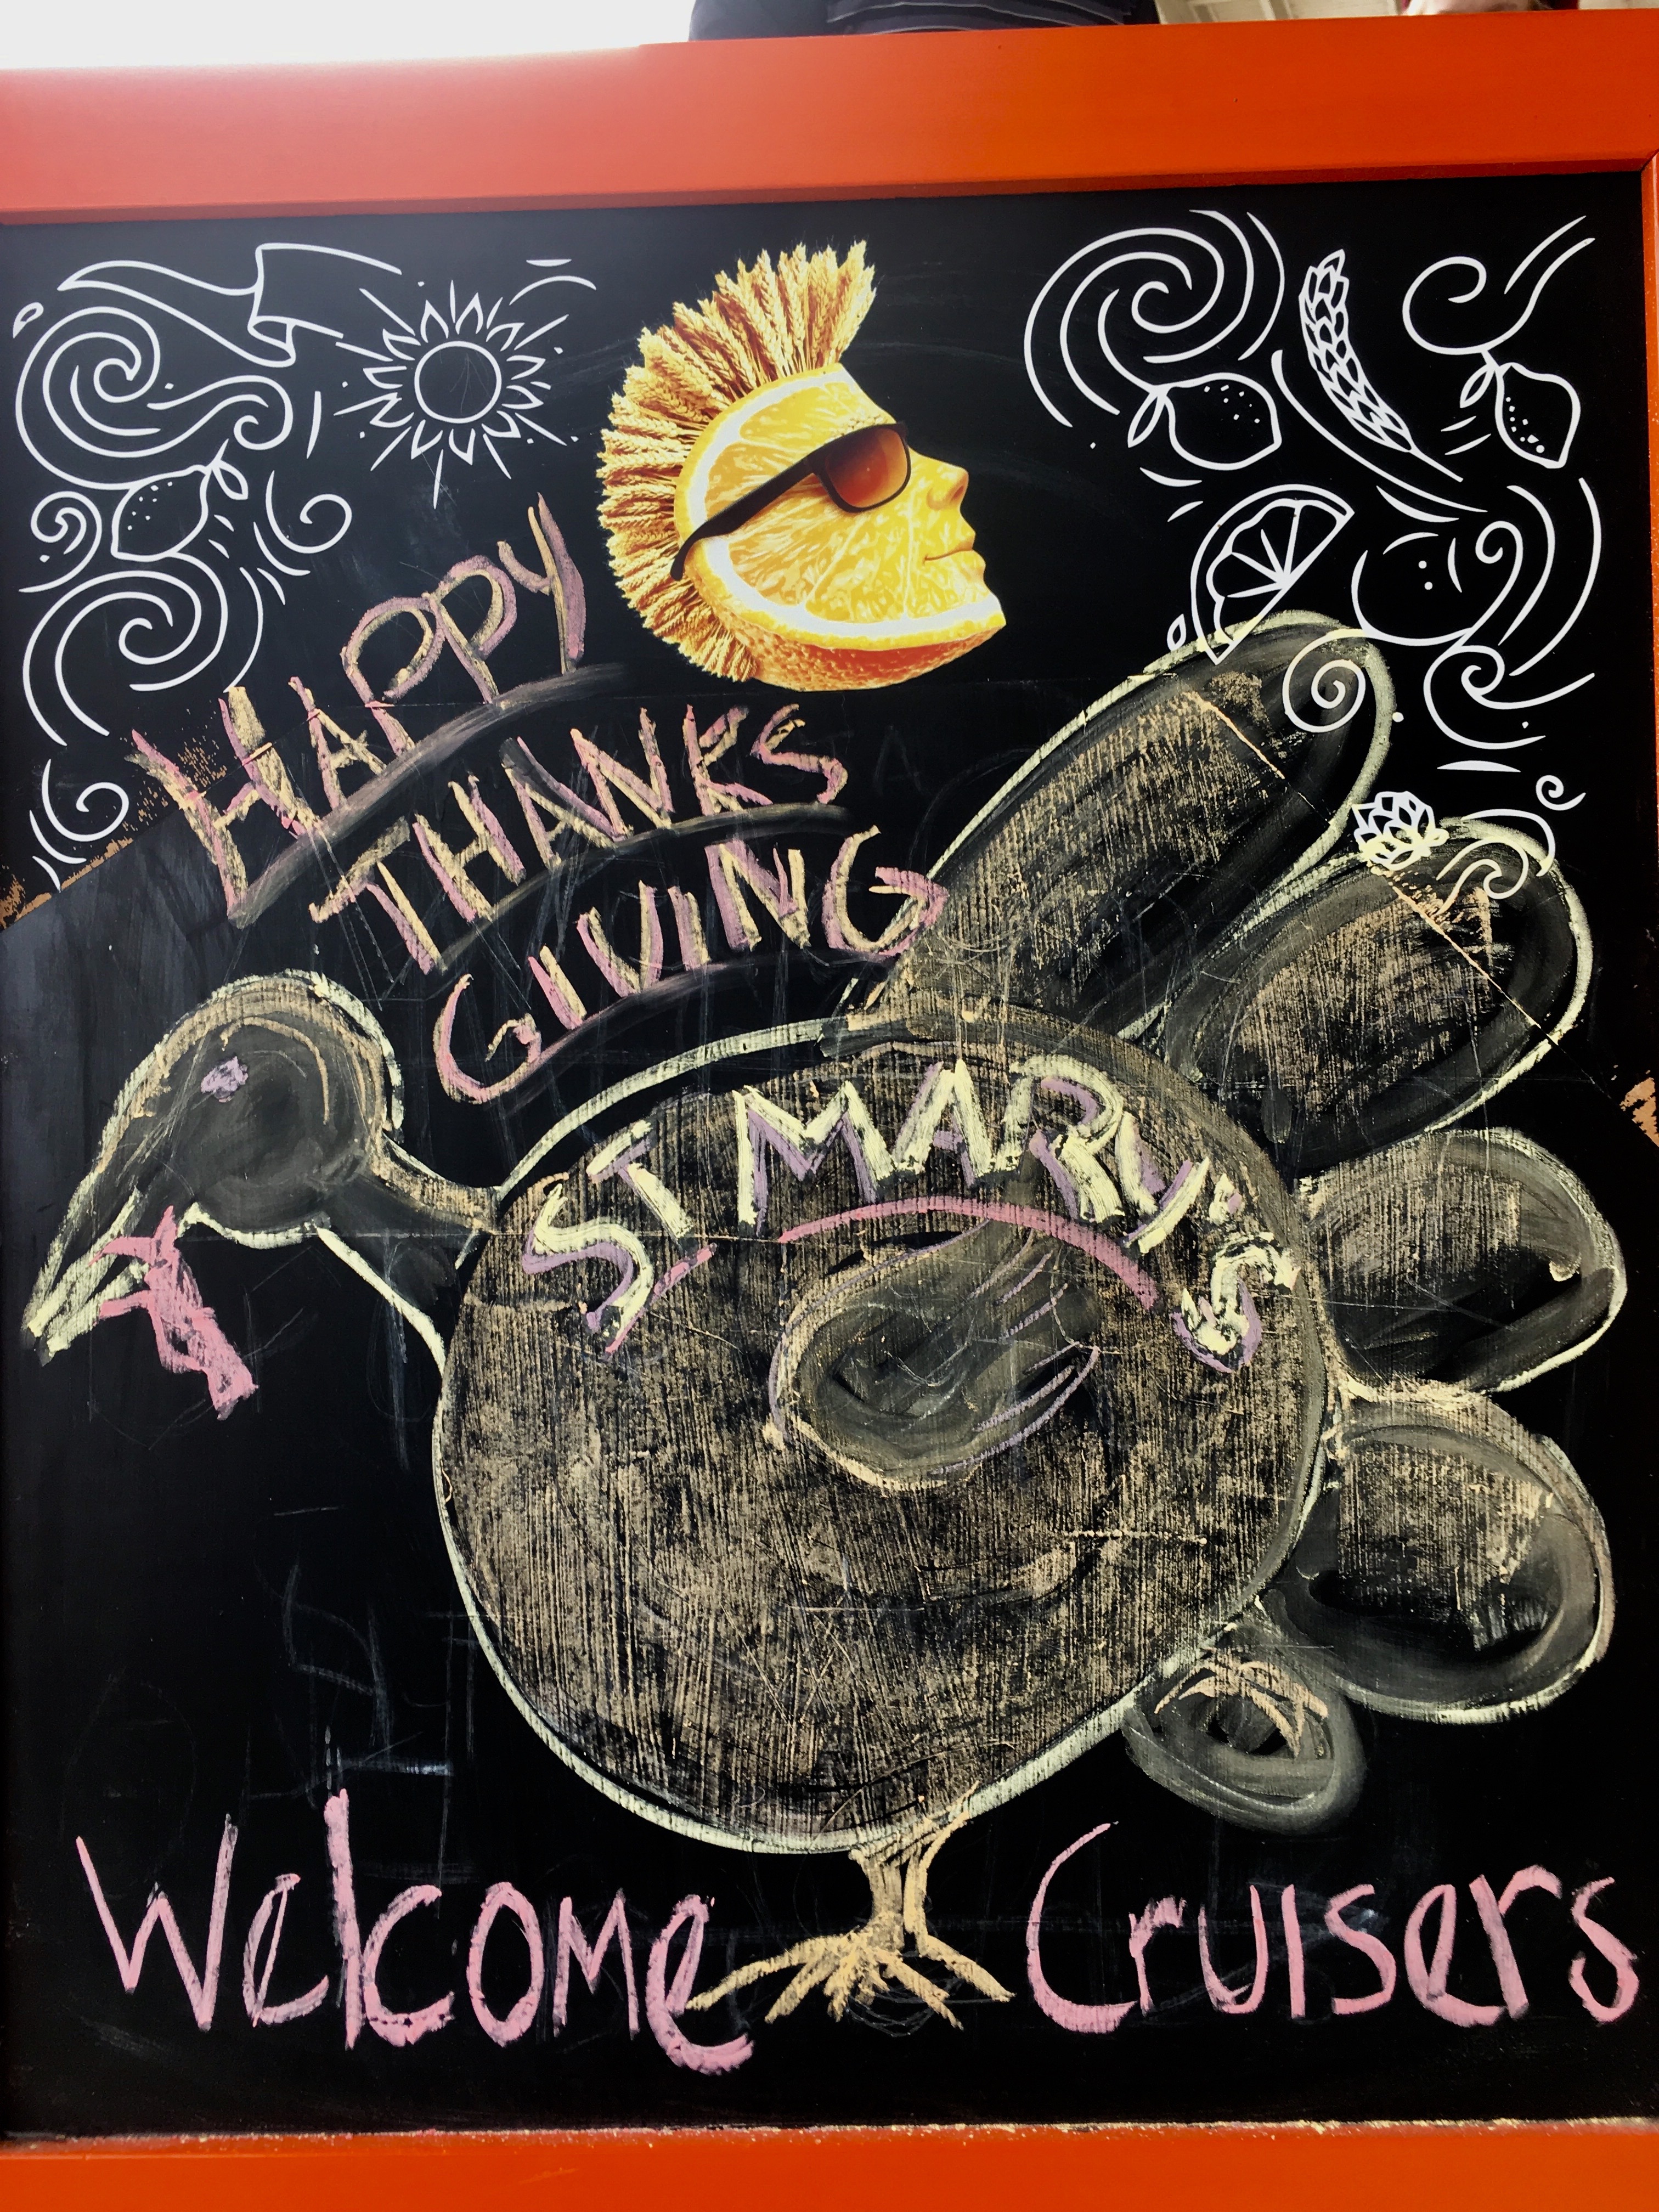 HAPPY
THANKS
GIVING
ST MARY'S
Welcome Cruisers